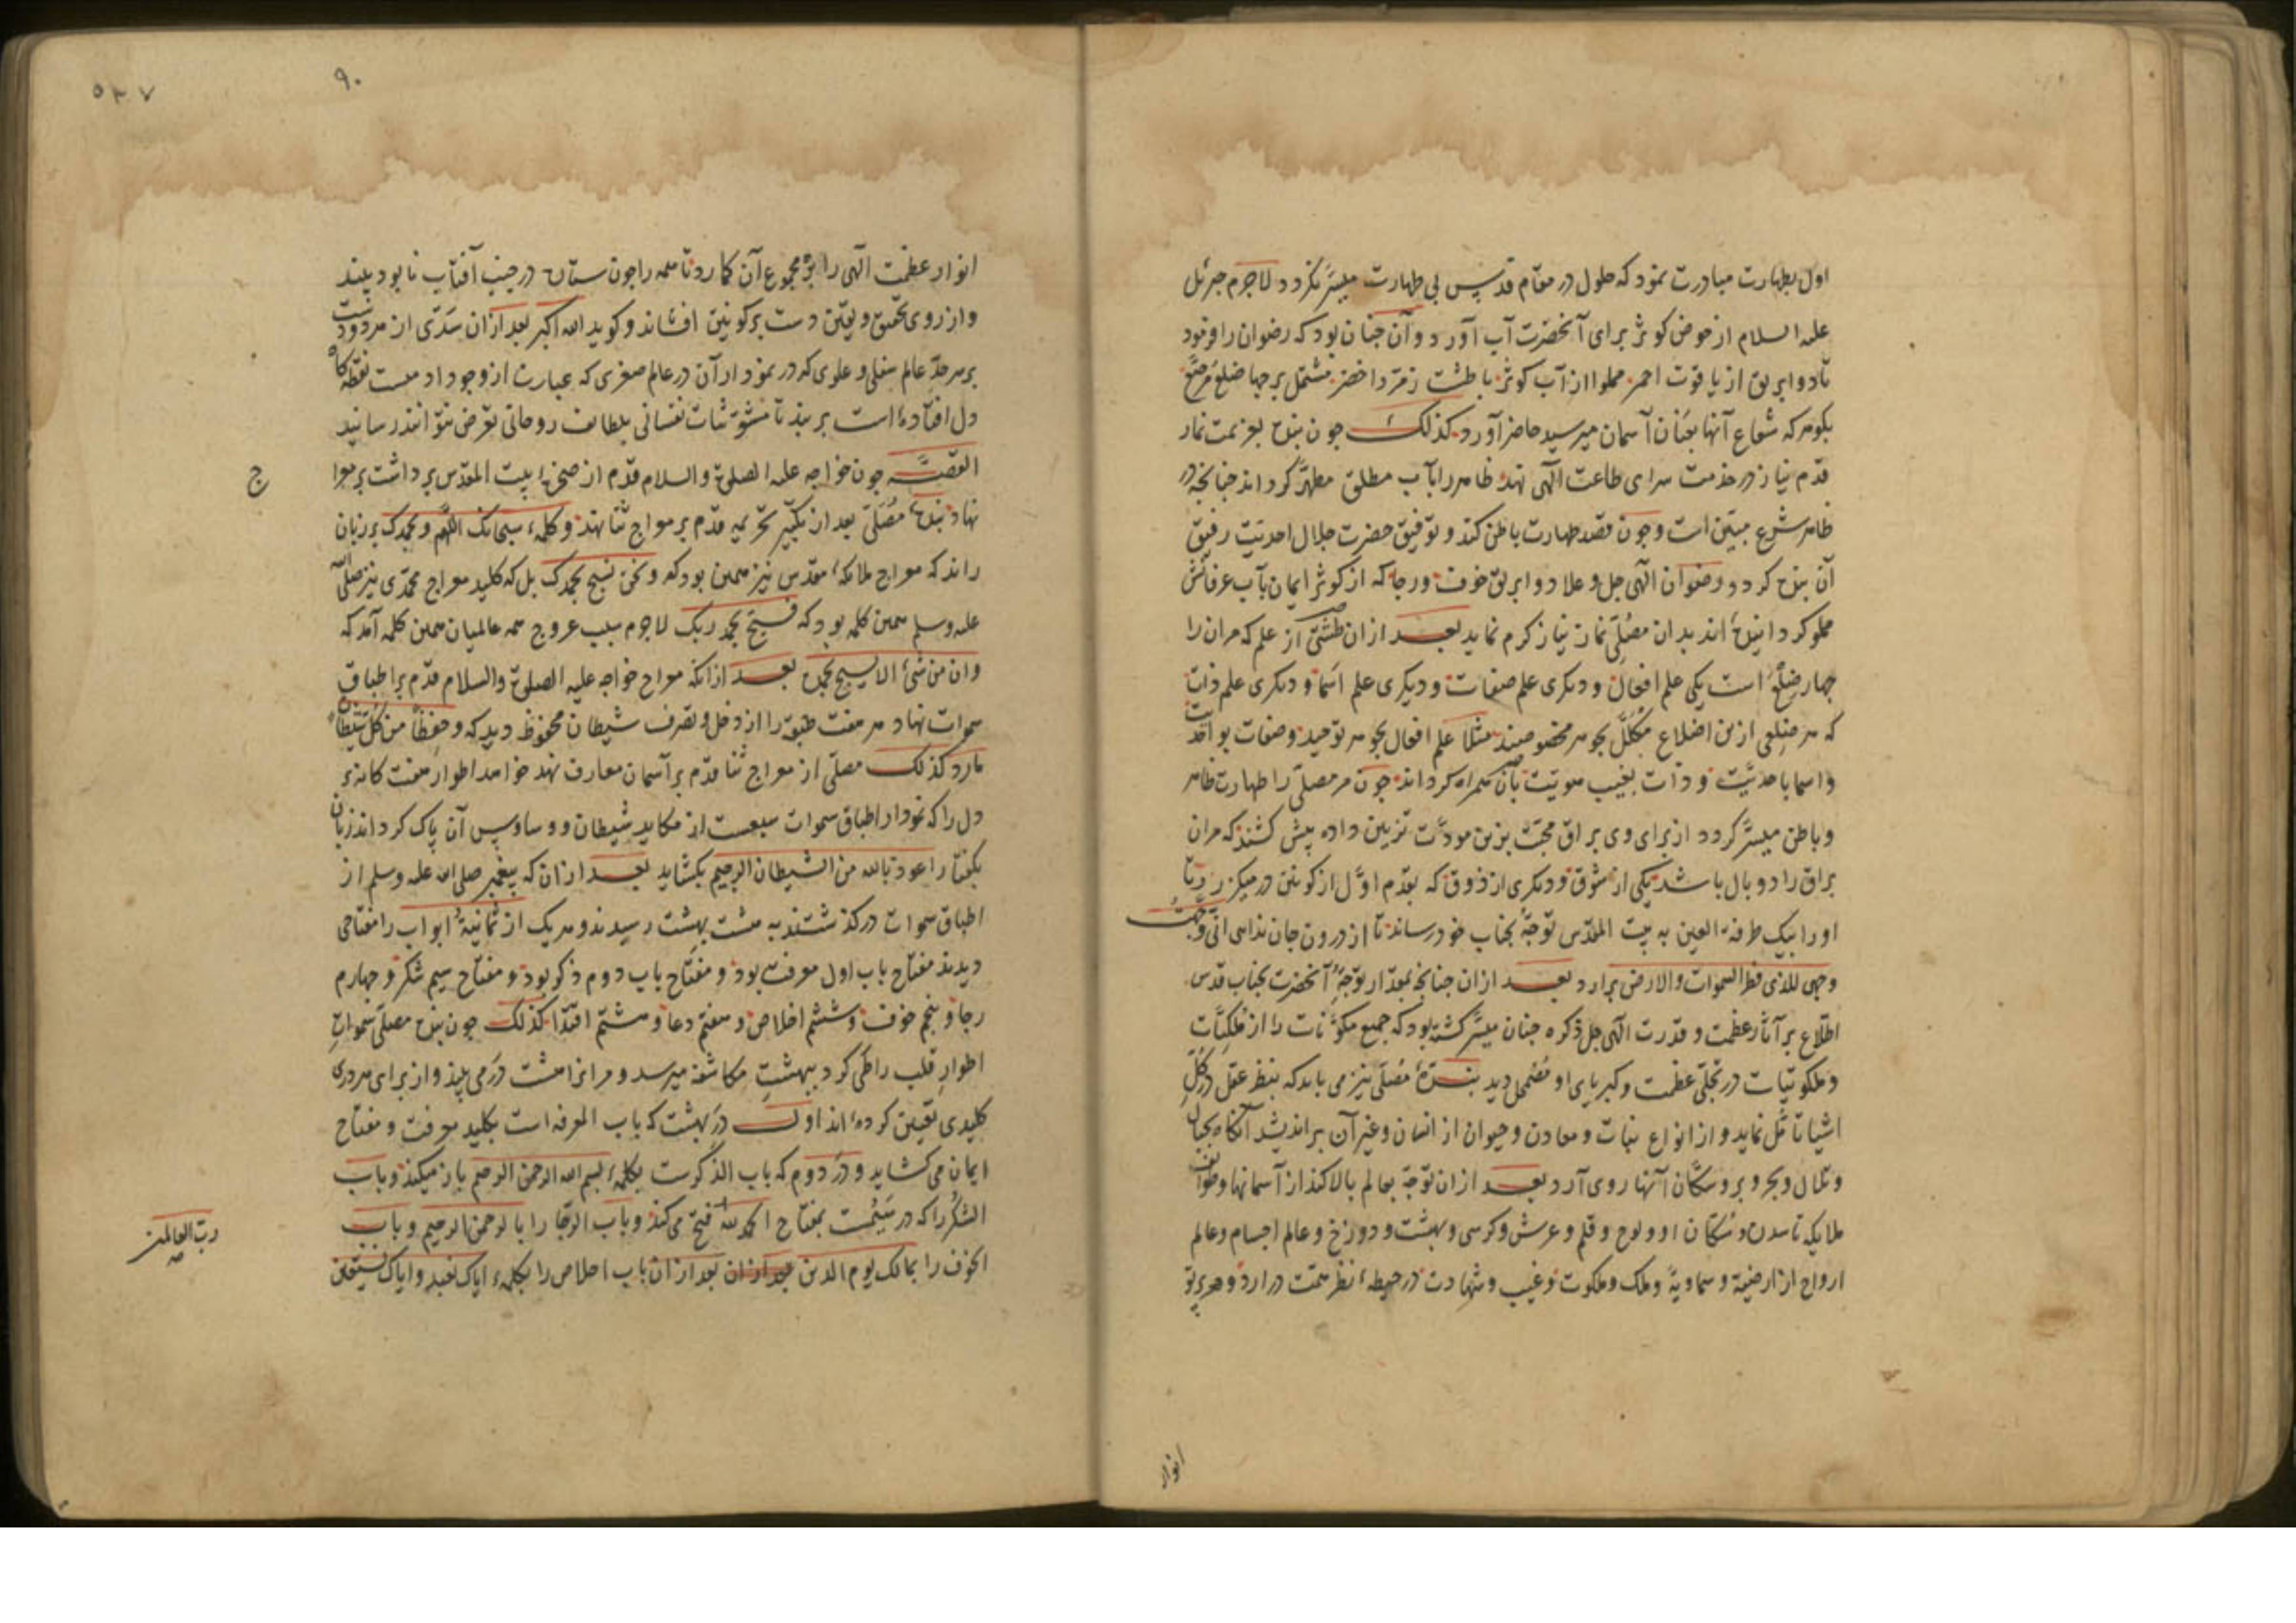 اول بطهارت مبادرت نمود که حلول در مقام قدس بی طهارت میسّر نگردد لاجرم جبرئل
علیه السلام از حوض کوثر برای آنحضرت آب آورد و آن چنان بود که رضوان را فرمود
تا دو ابریق از یاقوت احمر مملو از آب کوثر با طشت زمرد اخضر مشتمل بر چهار ضلع مرصّع
بگوهر که شعاع آنها بعنان آسمان میرسید حاضر آورد کذلک چون بنده بعزیمت نماز
قدم نیاز در خدمت سرای طاعت الهی نهد ظاهر را بآب مطلق مطهّر گرداند چنانچه در
ظاهر شرع مبیّن است و چون قصد طهارت باطن کند و توفیق حضرت جلال احدیّت رفیق
آن بنده گردد رضوان الهی جل و علا دو ابریق خوف و رجا که از کوثر ایمان بآب عرفانش
مملو گردانیده اند بدان مصلّی نماز نیاز کرم نماید بعد ازان طشتی از علم که مران را
چهار ضلع است یکی علم افعال و دیگری علم صفات و دیگری علم اسما و دیگری علم ذات
که هر ضلعی ازین اضلاع مکلّل بجوهر مخصوصند مثلا علم افعال بجوهر توحید و صفات بواحدیت
و اسما باحدیّت و ذات بغیب هویّت بآن همراه گرداند چون مر مصلّی را طهارت ظاهر
و باطن میسّر گردد از برای وی براق محبّت بزین مودّت تزیین داده پیش کشند که مران
براق را دو بال باشد یکی از شوق و دیگری از ذوق که بقدم اول از کونین در میگذرد تا
او را بیک طرفة العین به بیت المقدس توجّه بجناب خود رساند تا از درون جان ندای انّی وجّهت
وجهی للذی فطر السموات والارض برارد بعد ازان چنانچه بمقدار توجّه آنحضرت بجناب قدس
اطّلاع بر آثار عظمت و قدرت الهی جل ذکره چنان میسّر گشته بود که جمیع مکوّنات را از ملکیّات
و ملکوتیّات در تجلّی عظمت و کبریای او مضمحل دید بنده مصلّی نیز می باید که بنظر عقل در کل
اشیا تأمّل نماید و از انواع نبات و معادن و حیوان از انسان و غیر آن براندیشد آنگاه بجبال
و تلال و بحر و بر و سکّان آنها روی آرد بعد ازان توجّه بعالم بالا کند از آسمانها و طوائف
ملایکه تا سدره و سکان او و لوح و قلم و عرش و کرسی و بهشت و دوزخ و عالم اجسام و عالم
ارواح از ارضیة و سماویة و ملک و ملکوت و غیب و شهادت در حیطه نظر همّت درارد و هر پرتو
انوار
۹۰
۵۳۷
انوار عظمت الهی را بر مجموع آن گمارد تا همه را چون ستاره در جنب آفتاب نابود بیند
و از روی تحقیق و یقین دست بر کونین افشاند و گوید الله اکبر بعد ازان سدّی از مردود دست
بر سر حدّ عالم سفلی و علوی که در نمودار آن در عالم صغری که عبارت از وجود اوست نقطه کاه
دل افتاده است بربندد تا مشوّشات نفسانی بلطایف روحانی تعرض نتوانند رسانید
القصّه چون خواجه علیه الصلوة والسلام قدم از صخره بیت المقدس برداشت بر هوا
ج
نهاد بنده مصلّی بعد از تکبیر تحریمه قدم بر معراج ثنا نهد و کلمه سبحانک اللهم و بحمدک بر زبان
راند که معراج ملائکه مقدس نیز همین بود که و نحن نسبح بحمدک بل که کلید معراج محمدی نیز صلی الله
علیه و سلم همین کلمه بود که فسبّح بحمد ربک لاجرم سبب عروج همه عالمیان همین کلمه آمد که
وان من شئ الا یسبح بحمده بعد ازانکه معراج خواجه علیه الصلوة والسلام قدم بر اطباق
سموات نهاد هر هفت طبقه را از دخل و تصرف شیطان محفوظ دید که و حفظا من کل شیطان
مارد کذلک مصلّی از معراج ثنا قدم بر آسمان معارف نهد خواهد اطوار هفت کانه
دل را که نمودار اطباق سموات سبعست از مکاید شیطان و وساوس آن پاک گرداند زبان
بگفتار اعوذ بالله من الشیطان الرجیم بکشاید بعد ازان که پیغمبر صلی الله علیه وسلم از
اطباق سموات درگذشتند به هشت بهشت رسیدند و هر یک از ثمانیة ابواب را مفتاحی
دیدند مفتاح باب اول معرفت بود و مفتاح باب دوم ذکر بود و مفتاح سیم شکر و چهارم
رجا و پنجم خوف و ششم اخلاص و هفتم دعا و هشتم اقتدا کذلک چون بنده مصلّی سموات
اطوار قلب را طی کرد ببهشت مکاشفه میرسد و مرانرا هشت در می بیند و از برای هر دری
کلیدی تعیین کرده اند اول در بهشت که باب المعرفه است بکلید معرفت و مفتاح
ایمان می کشاید و در دوم که باب الذکرست بکلمه بسم الله الرحمن الرحیم باز میکند و باب
الشکر را که در سیّمست بمفتاح الحمد لله فتح می کند و باب الرجا را با لرحمن الرحیم و باب
رب العالمین
صح
الخوف را بمالک یوم الدین بعد ازان بعد ازان باب اخلاص را بکلمه ایاک نعبد و ایاک نستعین